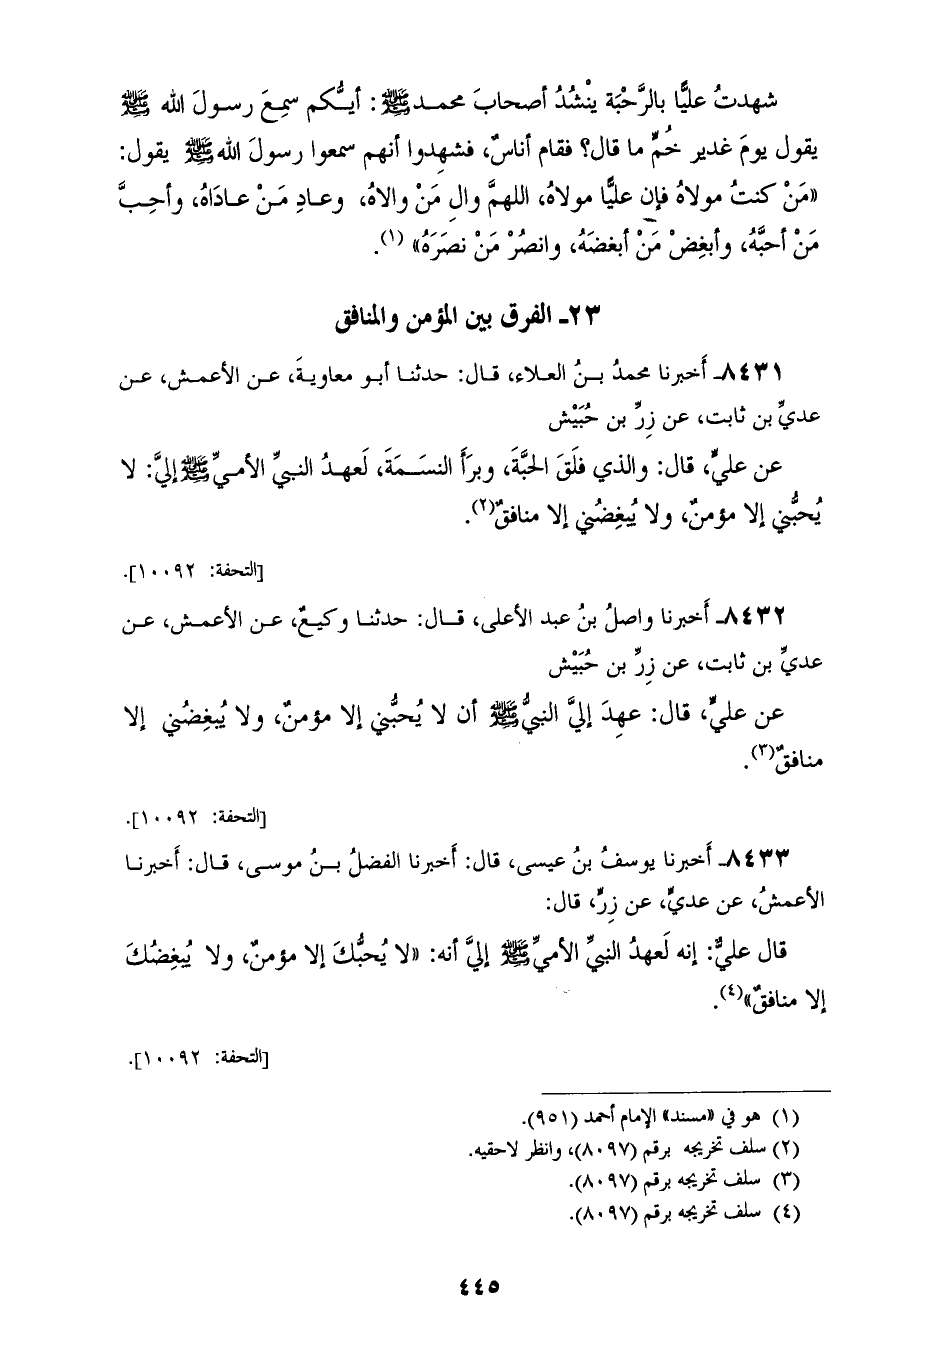 شهدتُ عليًّا بالرَّحْبَة ينْشُدُ أصحابَ محمـدﷺ: أيـُّكم سمِعَ رسـولَ الله ﷺ
يقول يومَ غدير خُمٍّ ما قال؟ فقام أناسٌ، فشهِدوا أنهم سمعوا رسولَ اللهﷺ يقول:
«مَنْ كنتُ مولاهُ فإن عليًّا مولاهُ، اللهمَّ والِ مَنْ والاهُ، وعـادِ مَـنْ عـادَاهُ، وأحِـبَّ
مَنْ أحبَّهُ، وأبغِضْ مَنْ أبغضَهُ، وانصُرْ مَنْ نصَرَهُ» (١).
٢٣ـ الفرق بين المؤمن والمنافق
٨٤٣١ـ أَخبرنا محمدُ بـنُ العـلاء، قـال: حدثنـا أبـو معاويـةَ، عـن الأعمـش، عـن
عديِّ بن ثابت، عن زِرِّ بن حُبَيْش
عن عليٍّ، قال: والذي فلَقَ الحبَّةَ، وبرَأَ النسَـمَةَ، لَعهـدُ النبـيِّ الأمـيِّﷺ إليَّ: لا
يُحبُّني إلا مؤمنٌ، ولا يُبغِضُني إلا منافقٌ(٢).
[التحفة: ١٠٠٩٢].
٨٤٣٢ـ أَخبرنا واصلُ بنُ عبد الأعلى، قـال: حدثنـا وكيـعٌ، عـن الأعمـش، عـن
عديِّ بن ثابت، عن زِرِّ بن حُبَيْش
عن عليٍّ، قال: عهِدَ إليَّ النبيُّﷺ أن لا يُحبُّني إلا مؤمنٌ، ولا يُبغِضُني إلا
منافقٌ(٣).
[التحفة: ١٠٠٩٢].
٨٤٣٣ـ أَخبرنا يوسفُ بنُ عيسى، قال: أَخبرنا الفضلُ بـنُ موسـى، قـال: أَخبرنـا
الأعمشُ، عن عديٍّ، عن زِرٍّ، قال:
قال عليٌّ: إنه لَعهدُ النبيِّ الأميِّﷺ إليَّ أنه: «لا يُحبُّكَ إلا مؤمنٌ، ولا يُبغِضُكَ
إلا منافقٌ»(٤).
[التحفة: ١٠٠٩٢].
(١) هو في «مسند» الإمام أحمد (٩٥١).
(٢) سلف تخريجه برقم (٨٠٩٧)، وانظر لاحقيه.
(٣) سلف تخريجه برقم (٨٠٩٧).
(٤) سلف تخريجه برقم (٨٠٩٧).
٤٤٥